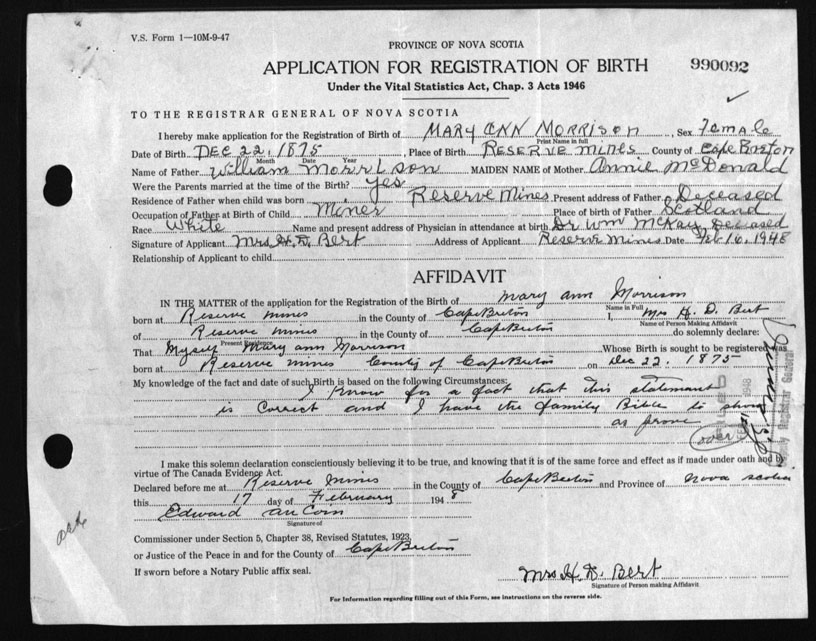 V.S. Form 1—10M-9-47
PROVINCE OF NOVA SCOTIA
APPLICATION FOR REGISTRATION OF BIRTH 990092
Under the Vital Statistics Act, Chap. 3 Acts 1946
TO THE REGISTRAR GENERAL OF NOVA SCOTIA
I hereby make application for the Registration of Birth of MARY ANN MORRISON, Sex Female
Print Name in full
Date of Birth DEC 22, 1875, Place of Birth RESERVE MINES County of Cape Breton
Month Date Year
Name of Father William Morrison MAIDEN NAME of Mother Annie McDonald
Were the Parents married at the time of the Birth? yes
Residence of Father when child was born Reserve Mines Present address of Father Deceased
Occupation of Father at Birth of Child Miner Place of birth of Father Scotland
Race White Name and present address of Physician in attendance at birth Dr Wm McKay, Deceased
Signature of Applicant Mrs. H. D. Bert Address of Applicant Reserve Mines Date Feb 16, 1948
Relationship of Applicant to child
AFFIDAVIT
IN THE MATTER of the application for the Registration of the Birth of Mary Ann Morrison
Name in Full
born at Reserve Mines in the County of Cape Breton I, Mrs H. D. Bert
Name of Person Making Affidavit
of Reserve Mines in the County of Cape Breton do solemnly declare:
Present Residence
That Myself Mary Ann Morrison Whose Birth is sought to be registered was
born at Reserve Mines County of Cape Breton on Dec 22. 1875
My knowledge of the fact and date of such Birth is based on the following Circumstances:
I know for a fact that this statement
is correct and I have the family Bible to show
as prove
over
I make this solemn declaration conscientiously believing it to be true, and knowing that it is of the same force and effect as if made under oath and by
virtue of The Canada Evidence Act.
Declared before me at Reserve Mines in the County of Cape Breton and Province of Nova Scotia
this 17 day of February 1948
Edward AuCoin
Signature of
Commissioner under Section 5, Chapter 38, Revised Statutes, 1923,
or Justice of the Peace in and for the County of Cape Breton
If sworn before a Notary Public affix seal.
Mrs H. D. Bert
Signature of Person making Affidavit
For Information regarding filling out of this Form, see instructions on the reverse side.